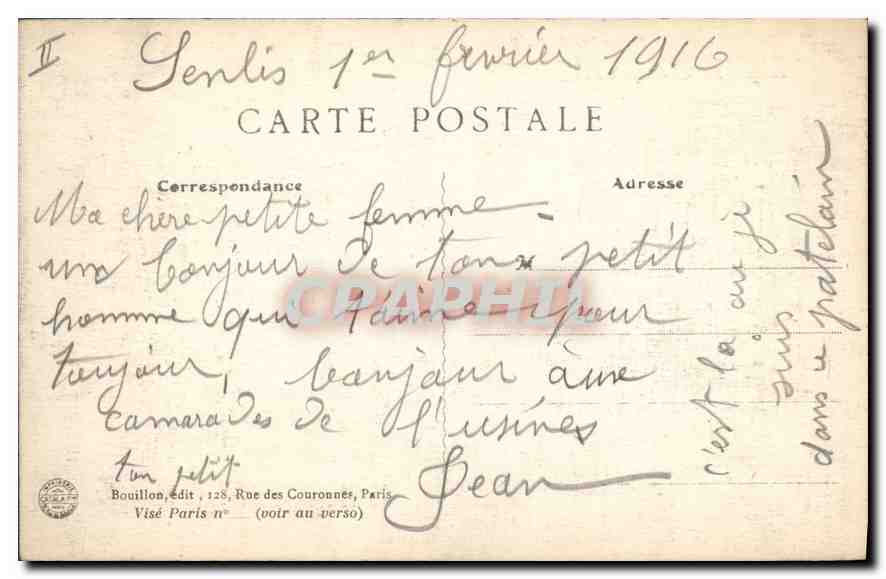 II
Senlis 1er fevrier 1916
CARTE POSTALE
Correspondance
Adresse
Ma chère petite femme
une bonjour de ton petit
homme qui t'aime pour
toujour, bonjour àuxe
camarades de l'usines
ton petit
Jean
c'est la ou je
suis
dans ce patelain
Bouillon, édit, 128, Rue des Couronnes, Paris
Visé Paris n° (voir au verso)
CPAPHIL